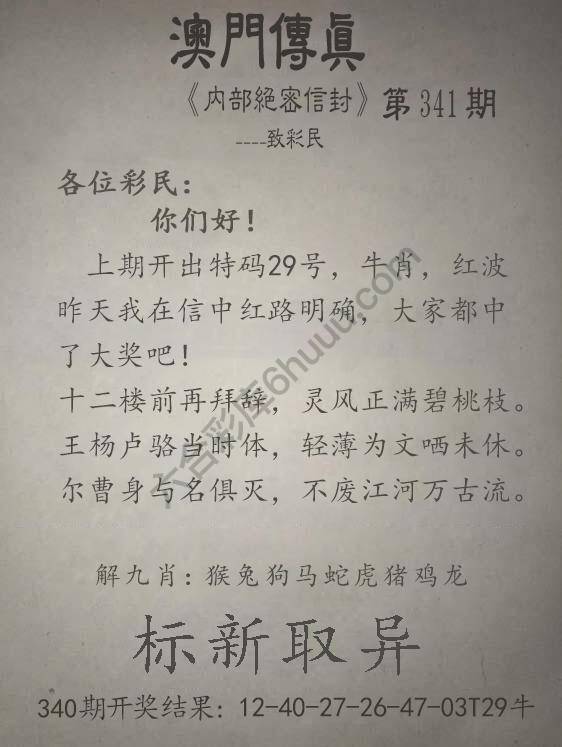 澳門傳眞
《内部絕密信封》第341期
----致彩民
各位彩民：
你们好！
上期开出特码29号，牛肖，红波
昨天我在信中红路明确，大家都中
了大奖吧！
十二楼前再拜辞，灵风正满碧桃枝。
王杨卢骆当时体，轻薄为文哂未休。
尔曹身与名俱灭，不废江河万古流。
六合彩库6huuu.com
解九肖：猴兔狗马蛇虎猪鸡龙
标新取异
340期开奖结果：12-40-27-26-47-03T29牛